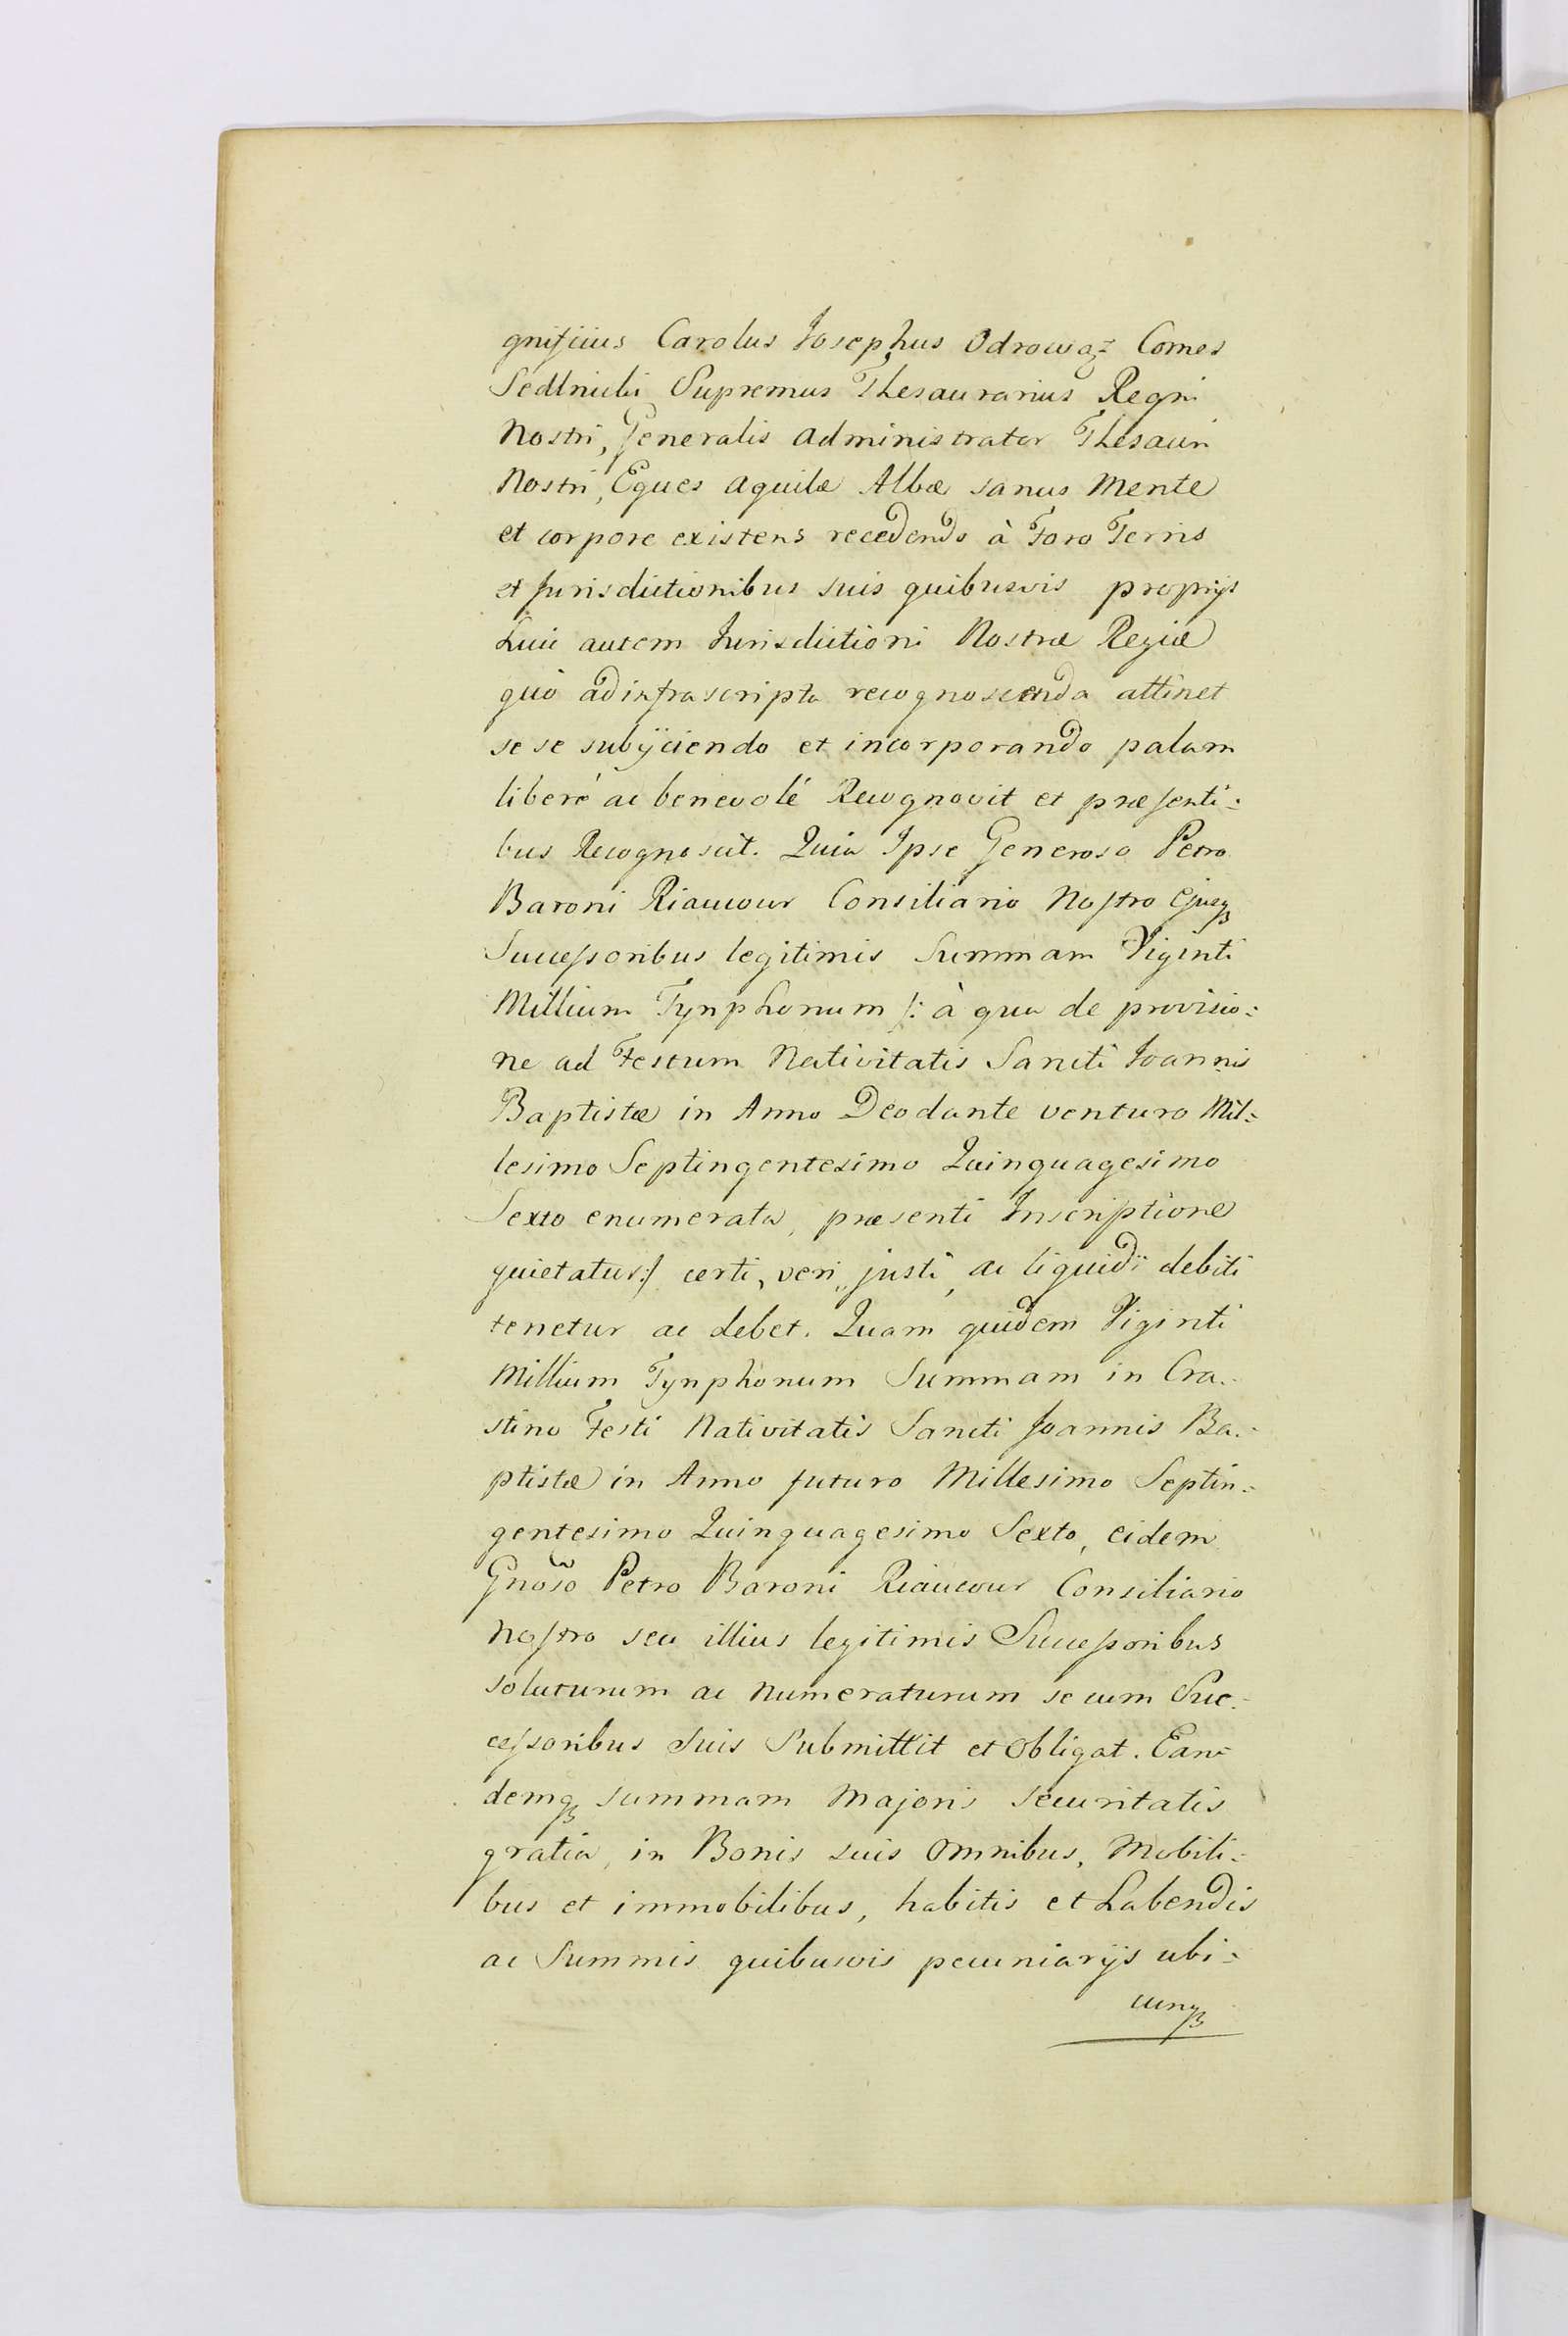 gnificus Carolus Josephus Odrowąz Comes
Sedlnicki Supremus Thesaurarius Regni
Nostri, Generalis Administrator Thesauri
Nostri, Eques Aquilæ Albæ sanus Mente
et corpore existens recedendo à Foro Terris
et Jurisdictionibus suis quibusvis proprijs
huic autem Jurisdictioni Nostræ Regiæ
quò ad infrascripta recognoscenda attinet
se se subÿciendo et incorporando palam
liberé ac benevolé Recognovit et præsenti:
bus Recognoscit. Quia Ipse Generoso Petro
Baroni Riaucour Consiliario Nostro Ejusqꝫ
Successoribus legitimis Summam Viginti
Millium Tynphonum /: à qua de provisio:
ne ad Festum Nativitatis Sancti Joannis
Baptistæ in Anno Deodante venturo Mil:
lesimo Septingentesimo Quinquagesimo
Sexto enumerata, præsenti Inscriptione
quietatur:/ certi, veri, justi, ac liquidi debiti
tenetur ac debet. Quam quidem Viginti
Millium Tynphonum Summam in Cra:
stino Festi Nativitatis Sancti Joannis Ba:
ptistæ in Anno futuro Millesimo Septin:
gentesimo Quinquagesimo Sexto, eidem
Gnõso Petro Baroni Riaucour Consiliario
Nostro seu illius legitimis Successoribus
soluturum ac numeraturum se cum Suc:
cessoribus Suis Submittit et Obligat. Ean:
demqꝫ summam Majoris securitatis
gratia, in Bonis suis Omnibus, Mobili:
bus et immobilibus, habitis et habendis
ac Summis quibusvis pecuniarijs ubi:
cunqꝫ